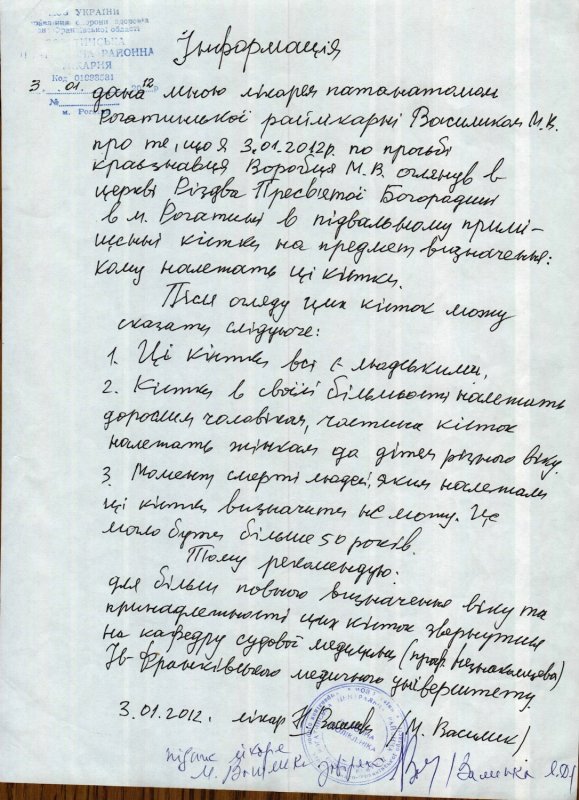 МОЗ УКРАЇНИ
РАЙОННА
ЛІКАРНЯ
Код 01993581
№
м. Рог
Інформація
3. 01. 2012
дана мною лікарем патанатомом
Рогатинської райлікарні Василиком М.В.
про те, що я 3.01.2012р. по просьбі
краєзнавця Воробця М.В. оглянув в
церкві Різдва Пресвятої Богородиці
в м. Рогатині в підвальному примі-
щенні кістки на предмет визначення:
кому належать ці кістки.
Після огляду цих кісток можу
сказати слідуюче:
1. Ці кістки всі є людськими.
2. Кістки в своїй більшості належать
дорослим чоловікам, частина кісток
належать жінкам да дітям різного віку.
3. Момент смерті людей, яким належали
ці кістки визначити не можу. Це
могло бути більше 50 років.
Тому рекомендую:
для більш повного визначення віку та
приналежності цих кісток звернутися
на кафедру судової медицини (проф.
Ів-Франківського медичного університету.
3.01.2012. лікар (М. Василик)
підпис лікаря
М. Василика